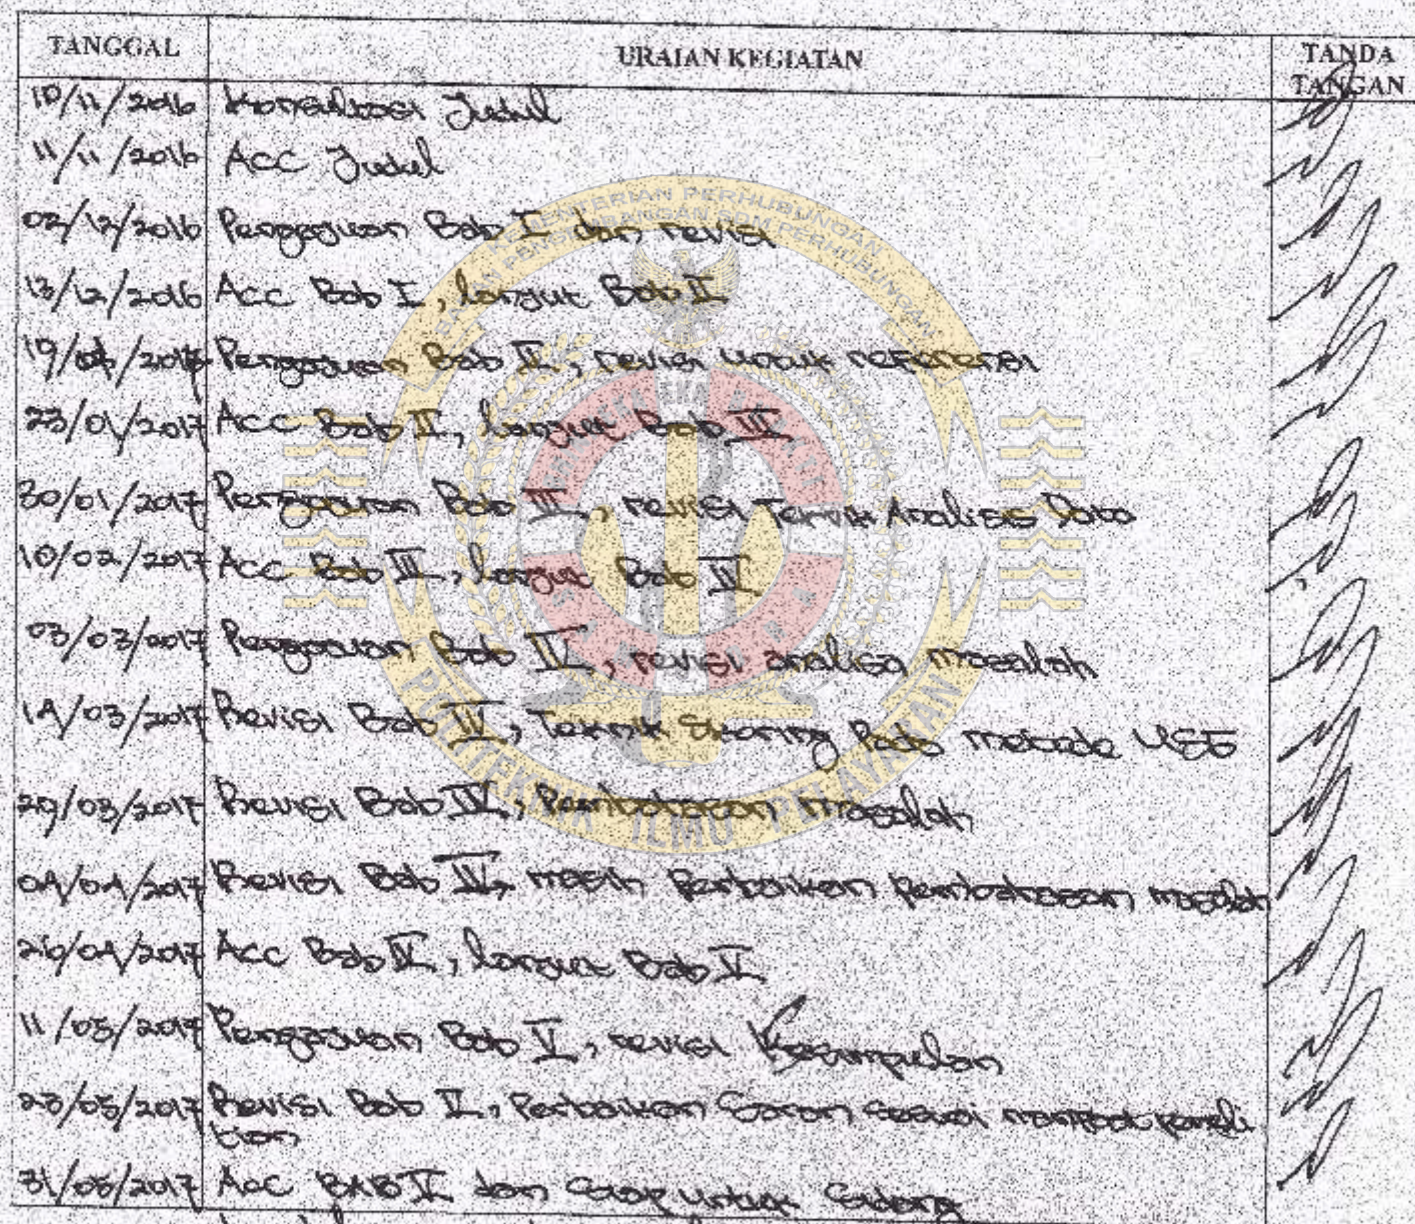 TANGGAL URAIAN KEGIATAN TANDA TANGAN
10/11/2016 Konsultasi Judul
11/11/2016 Acc Judul
02/12/2016 Pengajuan Bab I dan revisi
13/12/2016 Acc Bab I, lanjut Bab II
Pengajuan Bab II, revisi untuk referensi
23/01/2017 Acc Bab II, lanjut Bab III
30/01/2017 Pengajuan Bab III, revisi Teknik Analisis Data
10/02/2017 Acc Bab III, lanjut Bab IV
03/03/2017 Pengajuan Bab IV, revisi analisa masalah
14/03/2017 Revisi Bab Teknik Skoring Pada metode USG
29/03/2017 Revisi Bab IV, Pembahasan masalah
04/04/2017 Revisi Bab IV, masih perbaikan pembahasan masalah
26/04/2017 Acc Bab IV, lanjut Bab V
11/05/2017 Pengajuan Bab V, revisi Kesimpulan
23/05/2017 Revisi Bab V, Perbaikan Saran sesuai manfaat peneli
tian
31/05/2017 Acc BAB V dan Siap untuk Sidang
KEMENTERIAN PERHUBUNGAN
BADAN PENGEMBANGAN SDM PERHUBUNGAN
POLITEKNIK ILMU PELAYARAN